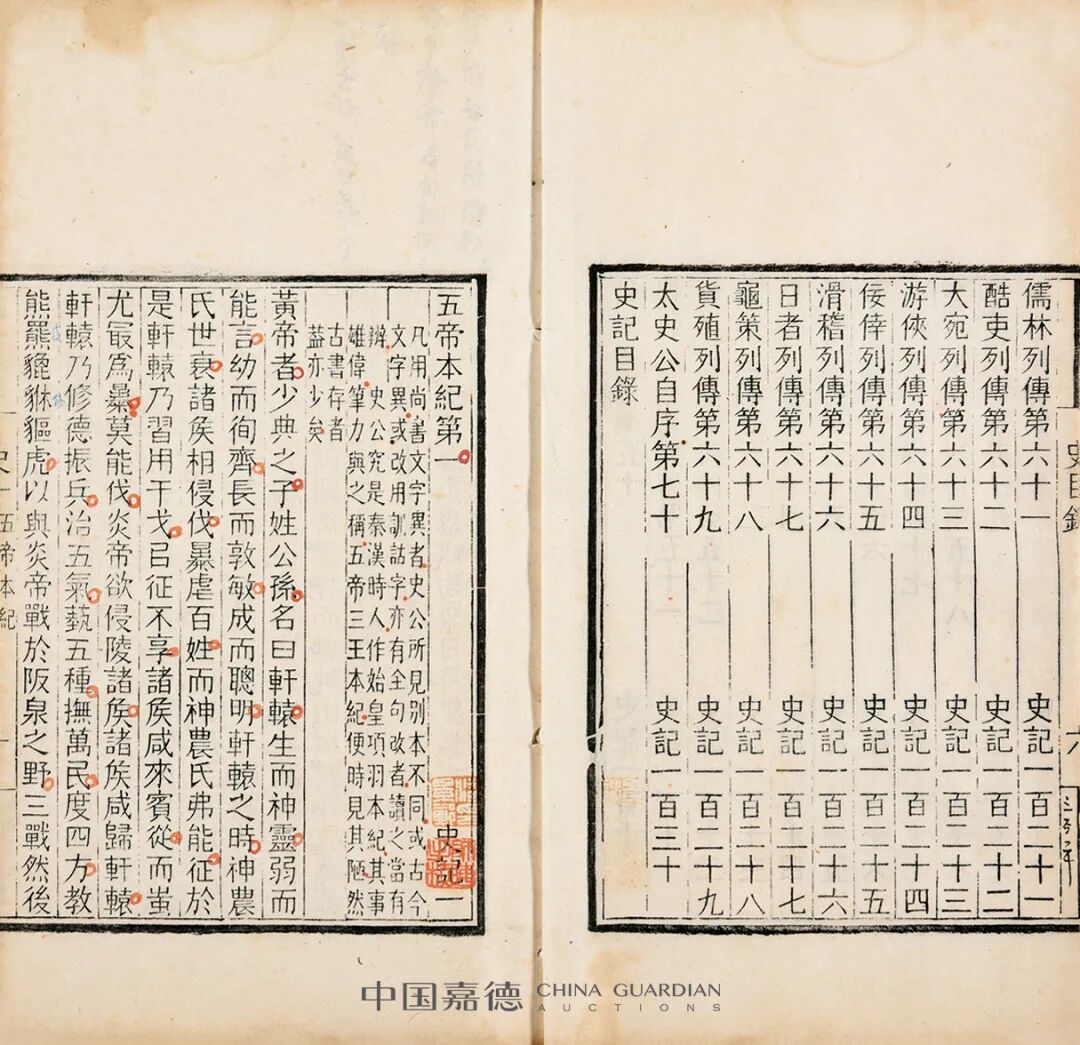 儒林列傳第六十一 史記一百二十一
酷吏列傳第六十二 史記一百二十二
大宛列傳第六十三 史記一百二十三
游俠列傳第六十四 史記一百二十四
佞倖列傳第六十五 史記一百二十五
滑稽列傳第六十六 史記一百二十六
日者列傳第六十七 史記一百二十七
龜策列傳第六十八 史記一百二十八
貨殖列傳第六十九 史記一百二十九
太史公自序第七十 史記一百三十
史記目錄
五帝本紀第一 史記一
凡用尚書文字異者史公所見別本不同或古今
文字異或改用訓詁字亦有全句改者讀之當有
辨史公究是秦漢時人作始皇項羽本紀其事
雄偉筆力與之稱五帝三王本紀便時見其陋然
古書存者
益亦少矣
黃帝者少典之子姓公孫名曰軒轅生而神靈弱而
能言幼而徇齊長而敦敏成而聰明軒轅之時神農
氏世衰諸矦相侵伐暴虐百姓而神農氏弗能征於
是軒轅乃習用干戈㠯征不享諸矦咸來賓從而蚩
尤冣爲暴莫能伐炎帝欲侵陵諸矦諸矦咸歸軒轅
軒轅乃修德振兵治五氣蓺五種撫萬民度四方教
熊羆貔貅貙虎以與炎帝戰於阪泉之野三戰然後
史一 五帝本紀 一
中国嘉德 CHINA GUARDIAN
AUCTIONS